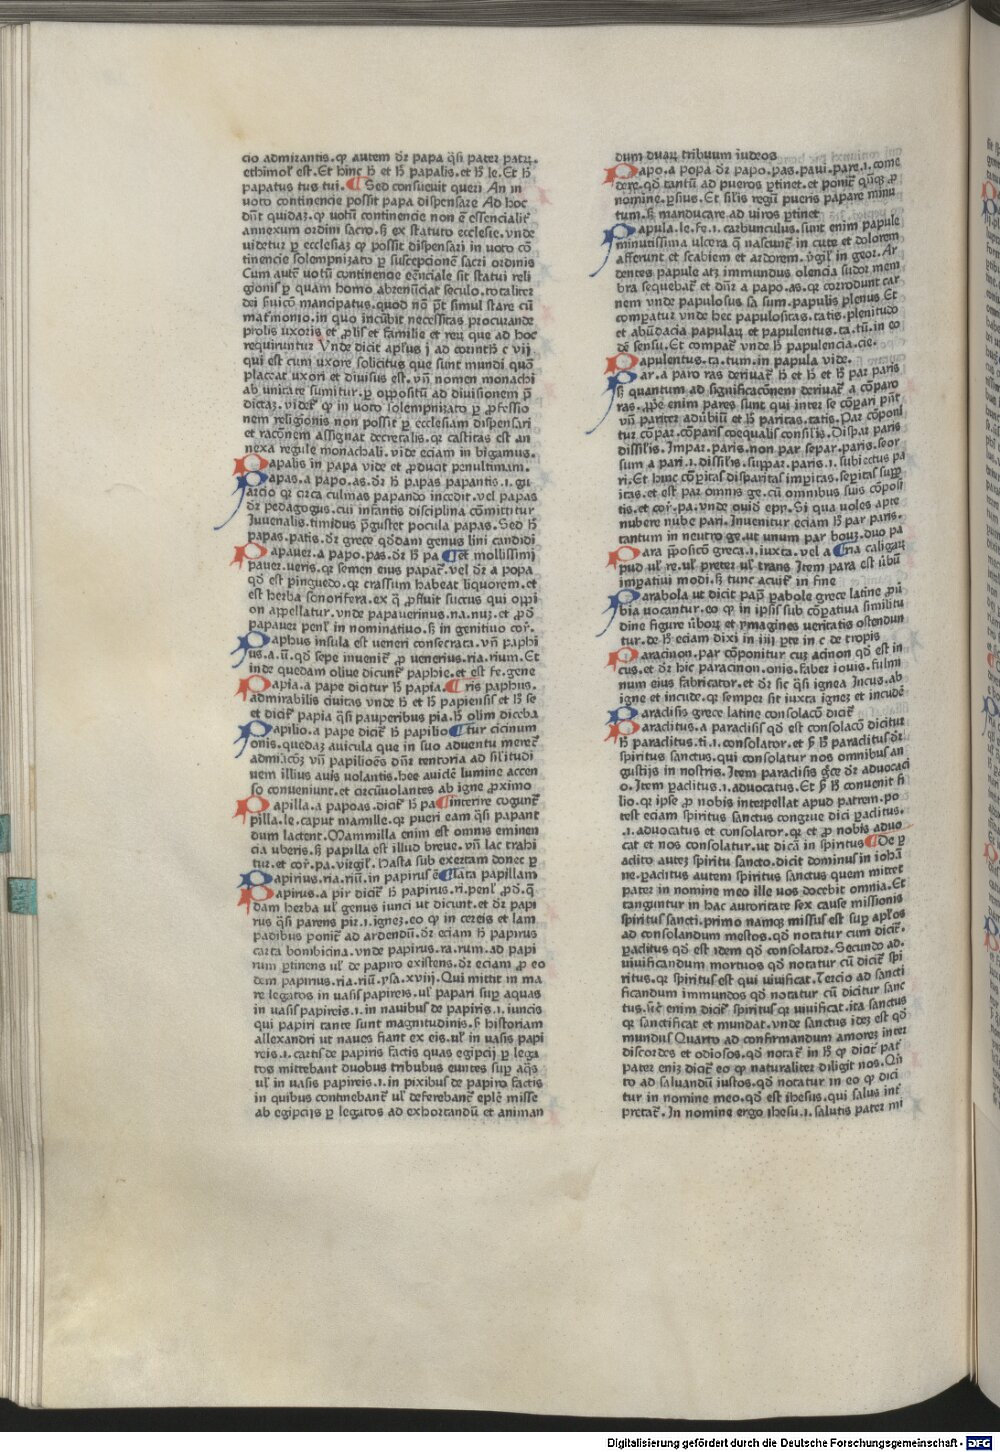 cio admirantis.ꝙ autem dr̄ papa q̄si pater patꝝ.
ethimol' est. Et hinc h̄ et h̄ papalis. et h̄ le. Et h̄
papatus tus tui. Sed consueuit queri An in
voto continencie possit papa dispensare Ad hoc
dn̄t quidaꝫ.ꝙ votū continencie non ē essencialit̄
annexum ordini sacro.sꝫ ex statuto ecclesie.vnde
videtur ꝑ ecclesiaꝫ ꝙ possit dispensari in voto cō
tinencie solempnizato ꝑ suscepcionē sacri ordinis
Cum autē votū continencie eēnciale sit statui reli
gionis ꝑ quam homo abrenūciat seculo.totaliter
dei s̄uicō mancipatus.quod nō pt̄ simul stare cū
mat̄monio.in quo incūbit necessitas procurande
prolis vxoris et ꝓlis et familie et reꝝ que ad hoc
requiruntur Vnde dicit apl̄us j ad corinth̄ c vij
qui est cum vxore solicitus que sunt mundi quō
placeat vxori et diuisus est.vn̄ nomen monachi
ab vnitate sumitur.ꝑ oppositū ad diuisionem p̄
dictaꝫ.videt̄ ꝙ in voto solempnizato ꝑ ꝓfessio
nem religionis non possit ꝑ ecclesiam dispensari
et racōnem assignat decretalis.qꝛ castitas est an
nexa regule monachali.vide eciam in bigamus.
Papalis in papa vide et ꝓducit penultimam.
Papas.a papo.as.dr̄ h̄ papas papantis.i.gu
arcio qꝛ circa culmas papando incedit.vel papas
dr̄ pedagogus.cui infantis disciplina cōmittitur
Iuuenalis.timidus p̄gustet pocula papas. Sed h̄
papas.patis.dr̄ grece qd̄dam genus lini candidi
Papauer.a papo.pas.dr̄ h̄ pa et mollissimi
pauer.ueris.qꝛ semen eius papat̄.vel dr̄ a popa
qd̄ est pinguedo.qꝛ crassum habeat liquorem.et
est herba sonorifera.ex q̄ ꝓfluit succus qui oppi
on appellatur.vnde papauerinus.na.nuꝫ.et ꝓd̄
papauer penl̄ in nominatiuo.sꝫ in genitiuo cor̄.
Paphus insula est veneri consecrata.vn̄ paphi
us.a.ū.qd̄ sepe inuenit̄ ꝓ venerius.ria.rium. Et
inde quedam oliue dicunt̄ paphie.et est fe.gene
Papia.a pape dicitur h̄ papia. ris paphus.
admirabilis ciuitas vnde h̄ et h̄ papiensis et h̄ se
et dicit̄ papia q̄si pauperibus pia.h̄ olim diceba
Papilio.a pape dicit̄ h̄ papilio tur cicinum
onis.quedaꝫ auicula que in suo aduentu meret̄
admiacōꝫ vn̄ papilioēs dn̄r tentoria ad sil'itudi
nem illius auis volantis.hee auiclē lumine accen
so conueniunt.et circūuolantes ab igne ꝓximo
Papilla.a papo as.dicit̄ h̄ pa interire cogunt̄
pilla.le.caput mamille.qꝛ pueri eam q̄si papant
dum lactent. Mammilla enim est omnis eminen
cia vberis.sꝫ papilla est illud breue.vn̄ lac trahi
tur.et cor̄.pa.virgil'. Hasta sub exertam donec ꝑ
Papirius.ria.riū.in papirus ē lata papillam
Papirus.a pir dicit̄ h̄ papirus.ri.penl̄ ꝓd̄.q̄
dam herba ul' genus iunci ut dicunt.et dr̄ papi
rus q̄si parens pir.i.igneꝫ.eo ꝙ in cereis et lam
padibus ponit̄ ad ardendū.dr̄ eciam h̄ papirus
carta bombicina.vnde papirus.ra.rum.ad papi
rum ꝑtinens ul' de papiro existens.dr̄ eciam ꝓ eo
dem papirius.ria.riū.ysa.xviij. Qui mittit in ma
re legatos in vasis papireis.ul' papari sup̄ aquas
in vasis papireis.i.in nauibus de papiris.i.iuncis
qui papiri tante sunt magnitudinis.sꝫ historiam
allexandri ut naues fiant ex eis.ul' in vasis papi
reis.i.cartis de papiris factis quas egipcij ꝑ lega
tos mittebant duobus tribubus euntes sup̄ aq̄s
ul' in vasis papireis.i.in pixibus de papiro factis
in quibus continebant̄ ul' deferebant̄ ep̄le misse
ab egipcijs ꝑ legatos ad exhortandū et animan
dum duaꝝ tribuum iudeos
Papo.a popa dr̄ papo.pas.paui.pare.i.come
dere.qd̄ tantū ad pueros ꝑtinet.et ponit̄ qn̄qꝫ ꝓ
nomine.ꝑsius. Et sil'is regū pueris papare minu
tum.sꝫ manducare ad viros ꝑtinet
Papula.le.fe.i.carbunculus.sunt enim papule
minutissima vlcera q̄ nascunt̄ in cute et dolorem
afferunt et scabiem et ardorem.v̄gil' in geor. Ar
dentes papule atqꝫ immundus olencia sudor mem
bra sequebat̄ et dn̄r a papo.as.qꝛ corrodunt car
nem vnde papulosus sa sum.papulis plenus Et
compatur vnde hec papulositas.tatis.plenitudo
et abūdacia papulaꝝ et papulentus.ta.tū.in eo
dē sensu. Et compat̄ vnde h̄ papulencia.cie.
Papulentus.ta.tum.in papula vide.
Par.a paro ras deriuat̄ h̄ et h̄ et h̄ par paris
sꝫ quantum ad significacōnem deriuat̄ a cōparo
ras.ꝓp̄e enim pares sunt qui inter se cōpari pn̄t
vn̄ pariter aduerbiū et h̄ paritas.tatis. Par cōponi
tur cōpar.cōparis coequalis consilis. Dispar paris
dissilis. Impar.paris.non par separ.paris.seor
sum a pari.i.dissilis.sup̄par.paris.i.subiectus pa
ri. Et hinc cōp̄itas disparitas imp̄itas.sep̄itas sup̄p̄
itas.et est par omnis ge.cū omnibus suis cōposi
tis.et cor̄.pa.vnde ouid̄ epr̄. Si qua voles apte
nubere nube pari. Inuenitur eciam h̄ par paris.
tantum in neutro ge.ut vnum par bouꝫ.duo pa
Para p̄posicō greca.i.iuxta.vel a ria caligaꝝ
pud ul' re.ul' preter ul' trans Item para est v̄bū
imꝑatiui modi.sꝫ tunc acuit̄ in fine
Parabola ut dicit pap̄ ꝑabole grece latine ꝓū
bia vocantur.eo ꝙ in ipsis sub cōꝑatiua similitu
dine figure v̄boꝝ et ymagines veritatis ostendun
tur.de h̄ eciam dixi in iiij ꝑte in c de tropis
Paracinon.par cōponitur cuꝫ acinon qd̄ est in
cus.et dr̄ hic paracinon.onis.faber iouis.fulmi
num eius fabricator.et dr̄ sic q̄si ignea incus.ab
igne et incude.qꝛ semper sit iuxta igneꝫ et incudē
Paraclisis grece latine consolacō dicit̄
Paraclitus.a paraclisis qd̄ est consolacō dicitur
h̄ paraclitus.ti.i.consolator.et ꝑ h̄ paraclitus dr̄
spiritus sanctus.qui consolatur nos omnibus an
gustijs in nostris. Item paraclisis g̅ce dr̄ aduocaci
o. Item ꝑaclitus.i.aduocatus. Et ꝑ h̄ conuenit fi
lio.qꝛ ipse ꝓ nobis interpellat apud patrem.po
test eciam spiritus sanctus congrue dici ꝑaclitus.
.i.aduocatus et consolator.qꝛ et ꝓ nobis aduo
cat et nos consolatur.ut dicā in spiritus De ꝑ
aclito autē spiritu sancto.dicit dominus in iohā
ne.ꝑaclitus autem spiritus sanctus quem mittet
pater in nomine meo ille vos docebit omnia. Et
tanguntur in hac autoritate sex cause missionis
spiritus sancti.primo namqꝫ missus est sup̄ apl̄os
ad consolandum mestos.qd̄ notatur cum dicit̄.
ꝑaclitus qd̄ est idem qd̄ consolator. Secundo ad.
viuificandum mortuos qd̄ notatur cū dicit̄ spi
ritus.qꝛ spiritus est qui viuificat. Tercio ad sancti
ficandum immundos qd̄ notatur cū dicitur sanc
tus.sic̄ enim dicit̄ spiritus qꝛ viuificat.ita sanctus
qꝛ sanctificat et mundat.vnde sanctus ideꝫ est qd̄
mundus Quarto ad confirmandum amoreꝫ inter
discordes et odiosos.qd̄ notat̄ in h̄ ꝙ dicit̄ pat̄
pater eniꝫ dicit̄ eo ꝙ naturaliter diligit nos. Qn̄
to ad saluandū iustos.qd̄ notatur in eo ꝙ dici
tur in nomine meo.qd̄ est ihesus.qui salus int̄
pretat̄. In nomine ergo ihesu.i.salutis pater mi
Digitalisierung gefördert durch die Deutsche Forschungsgemeinschaft - DFG